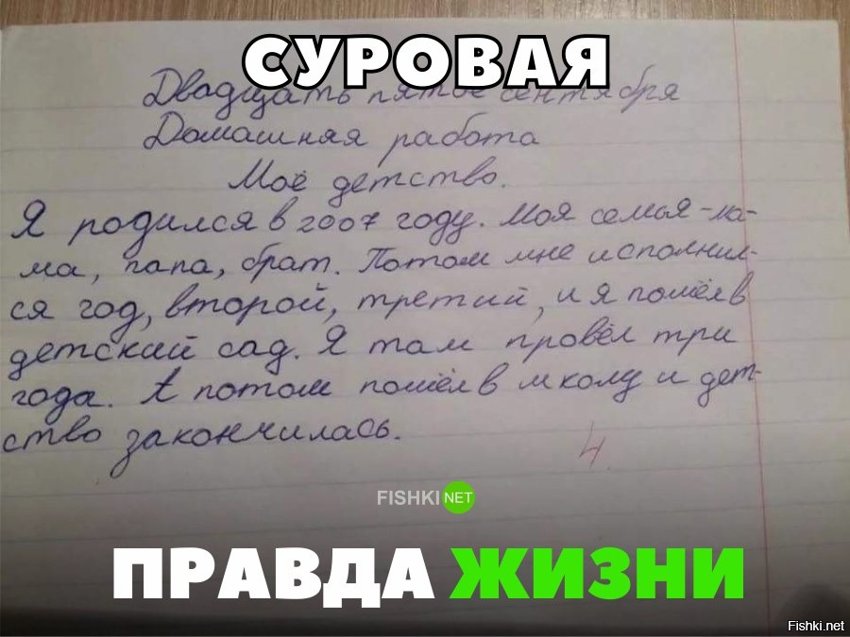 СУРОВАЯ
Двадцать пятое сентября
Домашняя работа
Моё детство.
Я родился в 2007 году. Моя семья - ма-
ма, папа, брат. Потом мне исполнил-
ся год, второй, третий, и я пошёл в
детский сад. Я там провёл три
года. А потом пошёл в школу и дет-
ство закончилась.
4
FISHKI NET
ПРАВДА ЖИЗНИ
Fishki.net